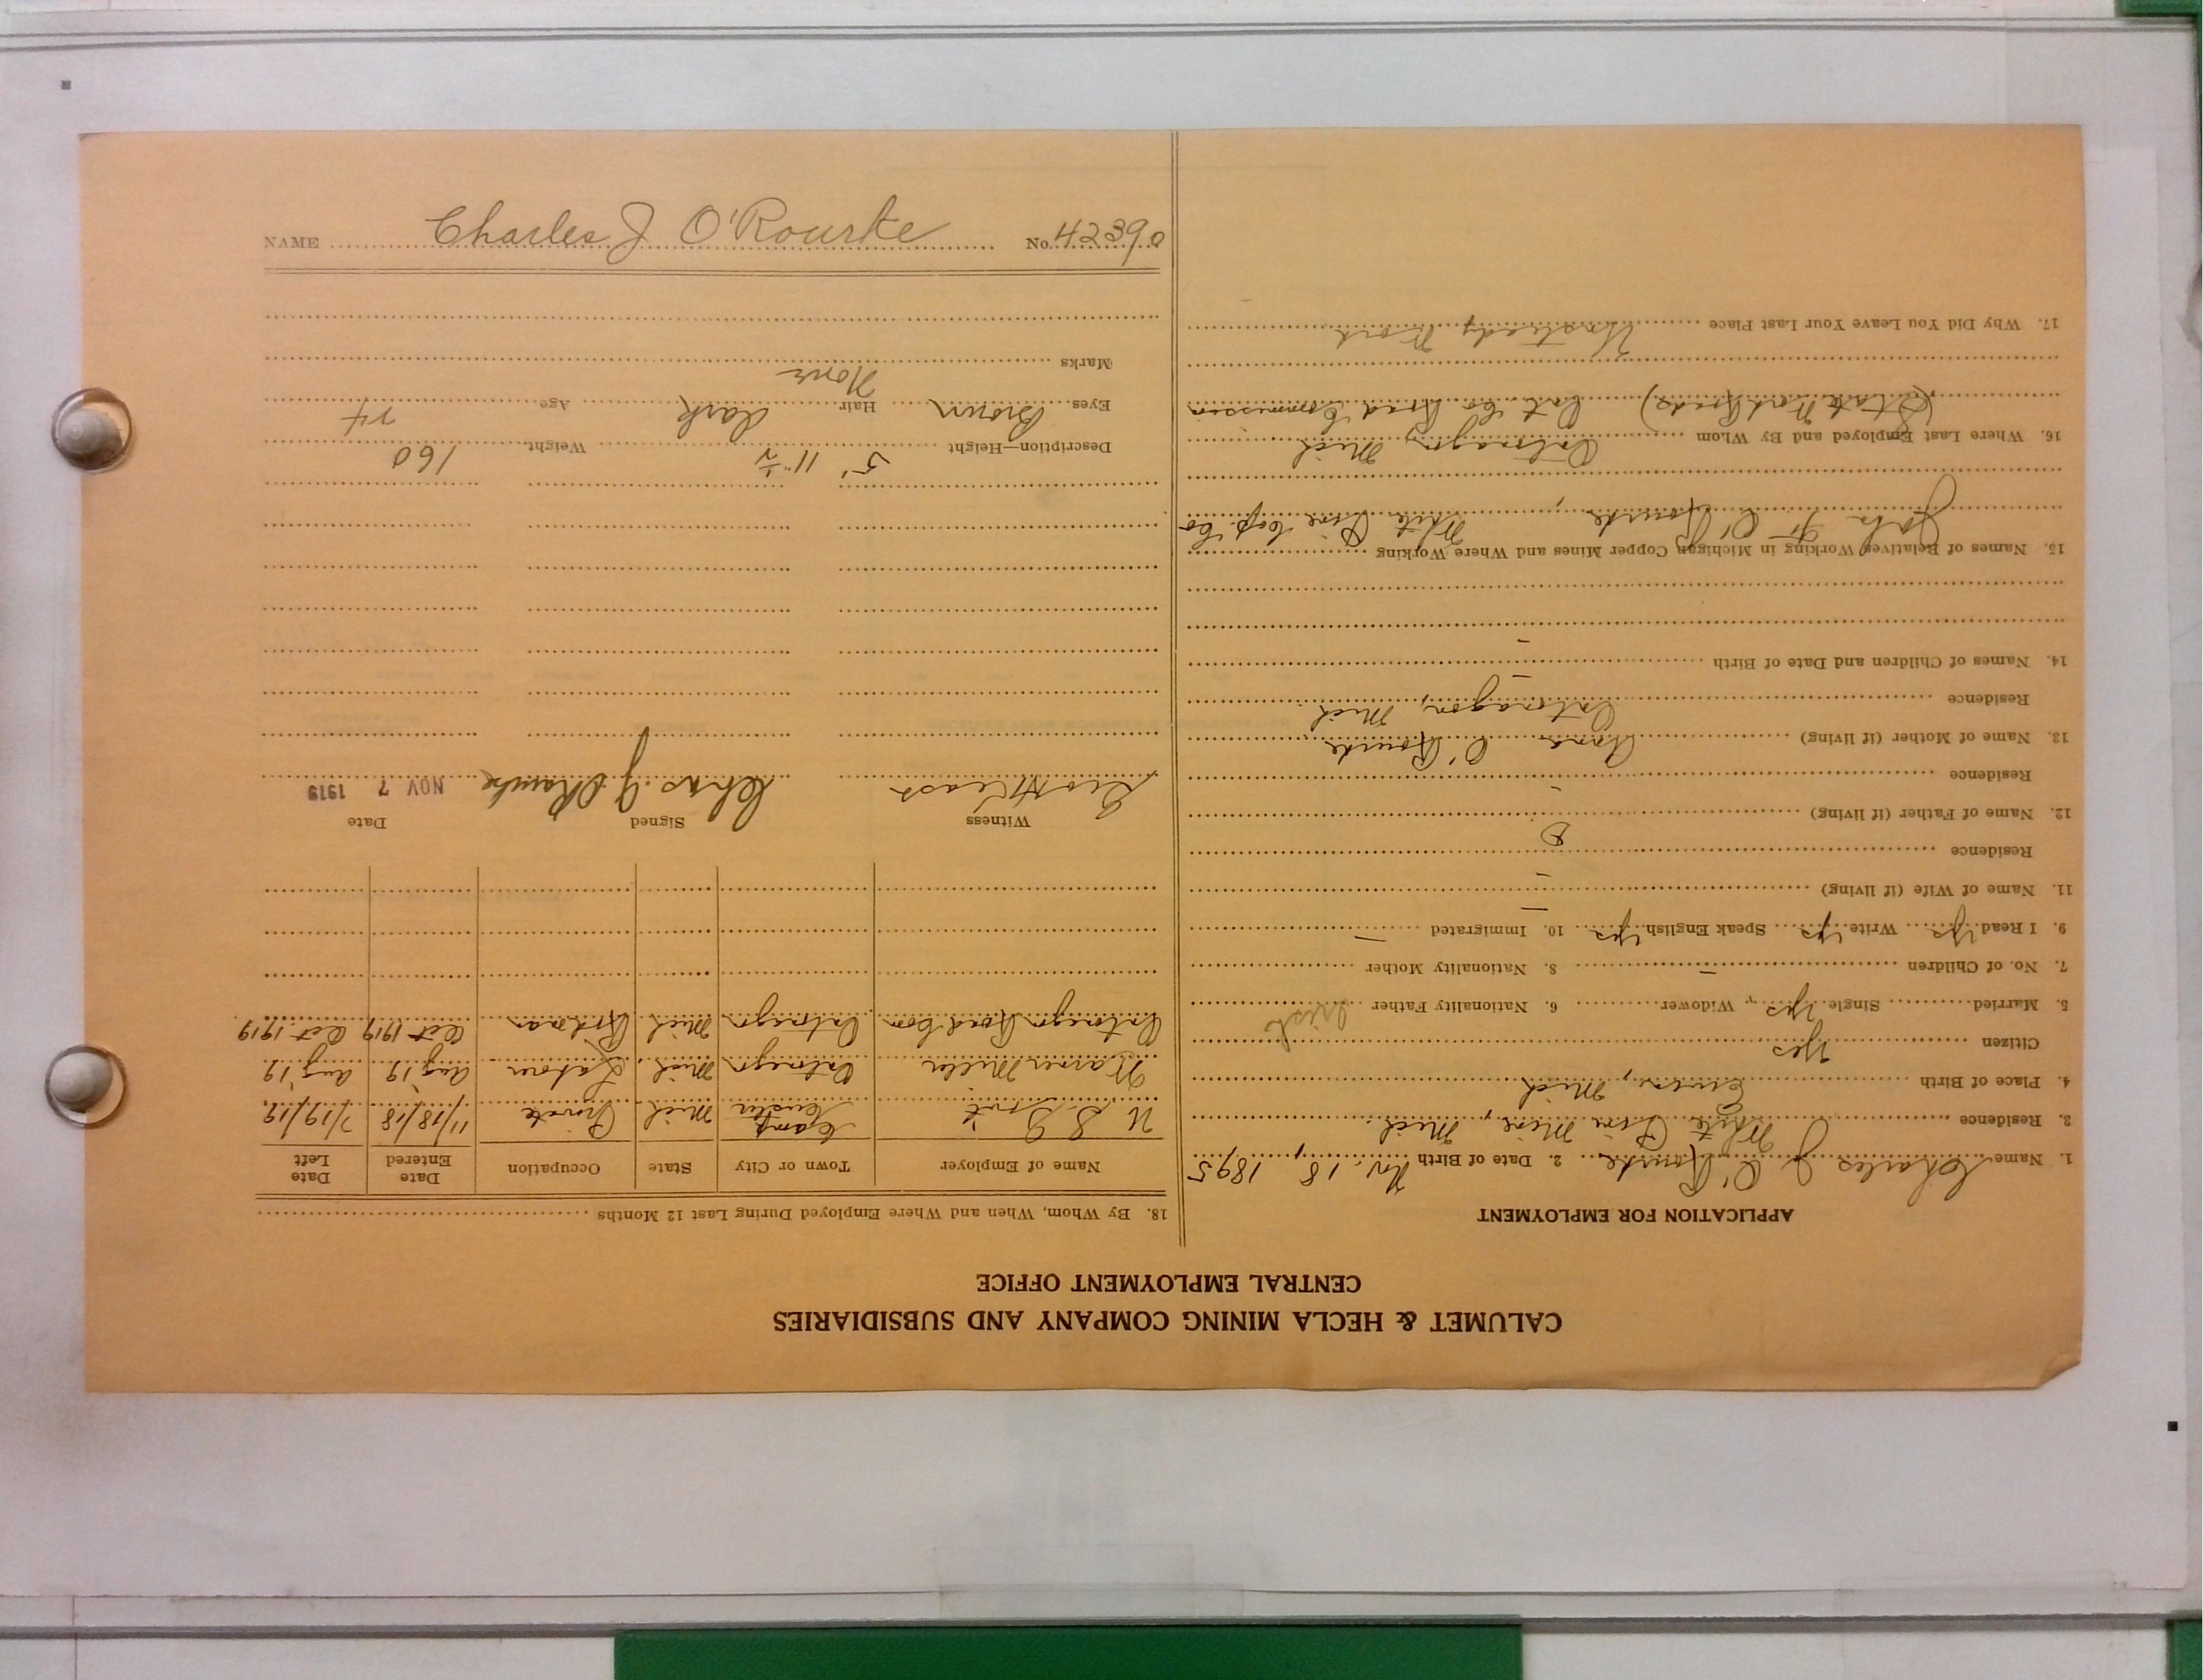 CALUMET & HECLA MINING COMPANY AND SUBSIDIARIES
CENTRAL EMPLOYMENT OFFICE
APPLICATION FOR EMPLOYMENT
1. Name Charles J O'Rourke 2. Date of Birth Nov. 18, 1895
3. Residence White Pine Mine, Mich.
4. Place of Birth Ewen, Mich
Citizen Yes
5. Married Single Yes, Widower 6. Nationality Father Irish
7. No. of Children — 8. Nationality Mother
9. I Read Yes Write Yes Speak English Yes 10. Immigrated —
11. Name of Wife (if living) —
Residence
12. Name of Father (if living) —
Residence
13. Name of Mother (if living) Anna O'Rourke
Residence Ontonagon, Mich.
14. Names of Children and Date of Birth —
15. Names of Relatives Working in Michigan Copper Mines and Where Working
John F O'Rourke, White Pine Cop. Co
16. Where Last Employed and By Whom Ontonagon, Mich
(State Road Roads) Ont Co Road Commission
17. Why Did You Leave Your Last Place Unsteady Work
18. By Whom, When and Where Employed During Last 12 Months
Name of Employer Town or City State Occupation Date Entered Date Left
U S Govt Camp Custer Mich Private 11/18/18 7/19/19
Warner Miller Ontonagon Mich. Laborer Aug 19 Aug 19
Ontonagon Road Com Ontonagon Mich. Oct 1919 Oct. 1919
Witness Signed Date
Chas. J O'Rourke NOV 7 1919
Description—Height 5' 11" ½ Weight 160
Eyes Brown Hair Dark Age 24
Marks None
NAME Charles J O'Rourke No. 42390